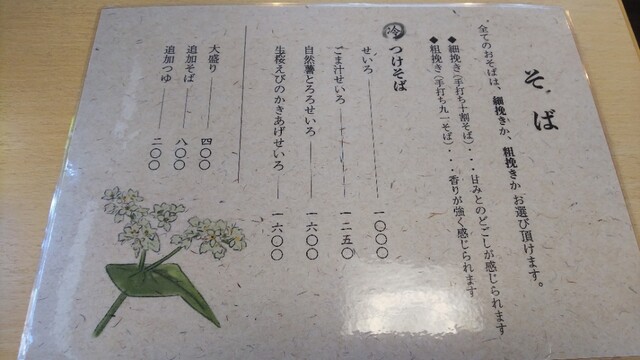 そば
全てのおそばは、細挽きか、粗挽きかお選び頂けます。
◆細挽き(手打ち十割そば)・・・甘みとのどごしが感じられます
◆粗挽き(手打ち九一そば)・・・香りが強く感じられます
冷 つけそば
せいろ 一〇〇〇
ごま汁せいろ 一二五〇
自然薯とろろせいろ 一六〇〇
生桜えびのかきあげせいろ 一六〇〇
大盛り 四〇〇
追加そば 八〇〇
追加つゆ 二〇〇